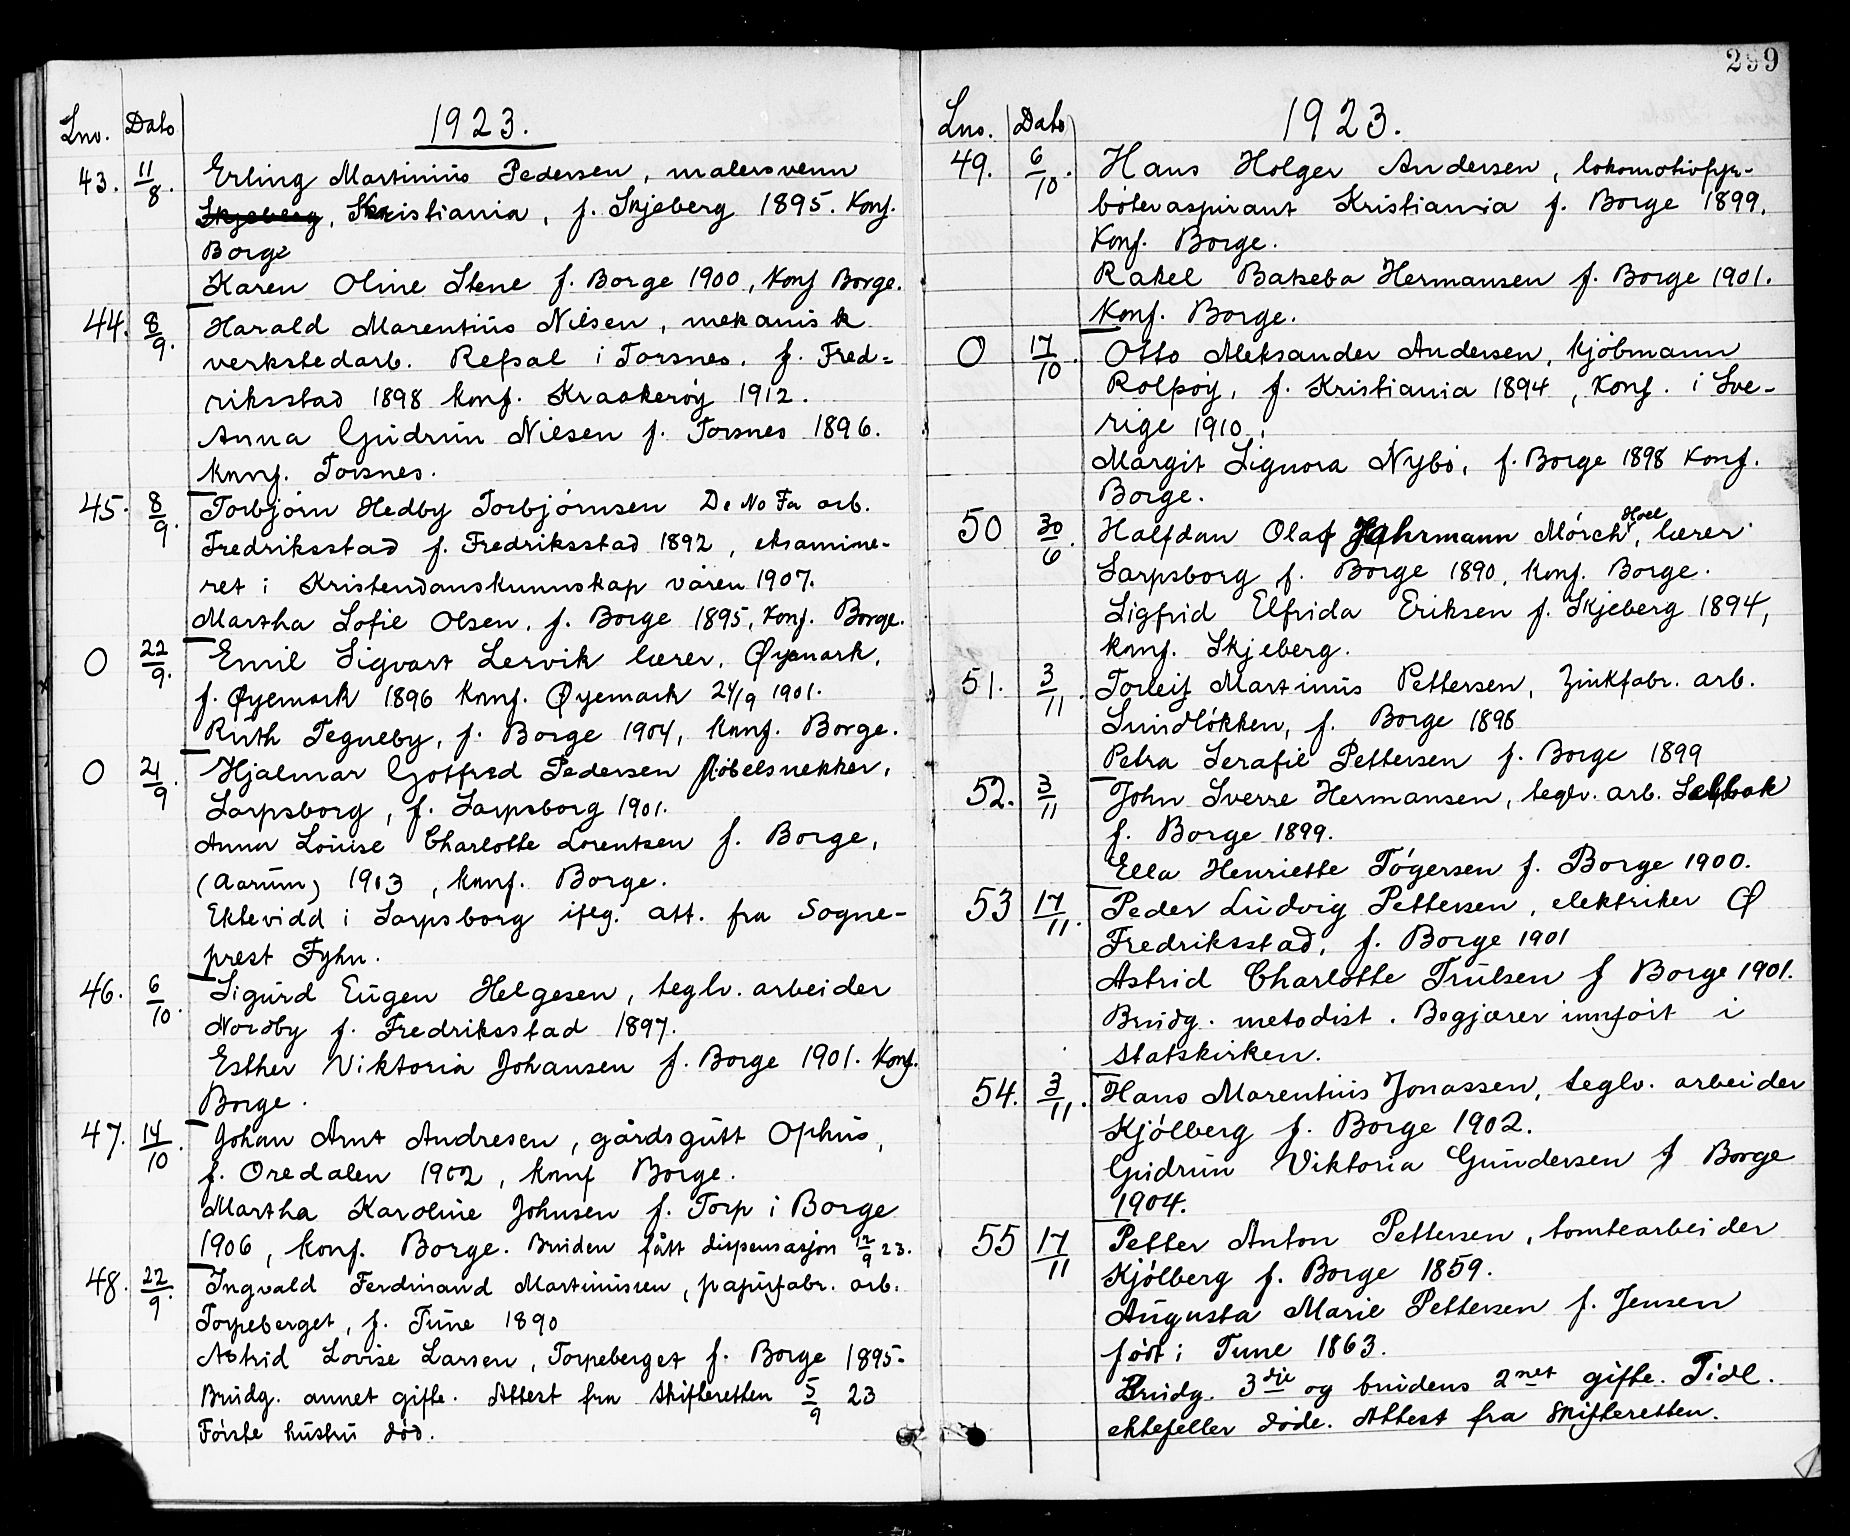 299
Lno. Dato 1923.
43. 11/8. Erling Martinius Pedersen, malersvenn
Skjeberg, Kristiania, f. Skjeberg 1895. Konf.
Borge
Karen Oline Stene f. Borge 1900, konf Borge.
44. 8/9. Harald Marentius Nilsen, mekanisk
verkstedarb. Refsal i Torsnes. f. Fred-
riksstad 1898 konf. Kraakerøy 1912.
Anna Gudrun Nilsen f. Torsnes 1896.
konf. Torsnes.
45. 8/9. Torbjørn Hedby Torbjørnsen De No Fa arb.
Fredriksstad f. Fredriksstad 1892, eksamine-
ret i Kristendomskunnskap våren 1907.
Martha Sofie Olsen. f. Borge 1895, konf. Borge.
0 22/9. Emil Sigvart Lervik lærer. Øymark.
f. Øyemark 1896 konf. Øyemark 24/9 1901.
Ruth Tegneby, f. Borge 1904, konf. Borge.
0 21/9. Hjalmar Gotfred Pedersen Møbelsnekker,
Sarpsborg, f. Sarpsborg 1901.
Anna Louise Charlotte Lorentzen f. Borge,
(Aarum) 1903, konf. Borge.
Ektevidd i Sarpsborg ifлg. att. fra Sogne-
prest Fyhn.
46. 6/10. Sigurd Eugen Helgesen, teglv. arbeider
Nordby f. Fredriksstad 1897.
Esther Viktoria Johansen f. Borge 1901. Konf.
Borge.
47. 14/10. Johan Arnt Andresen, gårdsgutt Ophus,
f. Oredalen 1902, konf Borge.
Martha Karoline Johnsen f. Torp i Borge
1906, konf. Borge. Bruden fått dispensasjon 12/9 23.
48. 22/9. Ingvald Ferdinand Martinussen, papirfabr. arb.
Torpeberget, f. Tune 1890
Astrid Lovise Larsen, Torpeberget f. Borge 1895.
Brudg. annet gifte. Attest fra Skifteretten 5/9 23
Første hustru død.
Lno. Dato 1923.
49. 6/10. Hans Holger Andersen, lokomotivfyr-
bøteraspirant Kristiania f. Borge 1899.
Konf. Borge.
Rakel Batseba Hermansen f. Borge 1901.
Konf. Borge.
0 17/10. Otto Aleksander Andersen, kjøbmann
Rolfsøy, f. Kristiania 1894, konf. i Sve-
rige 1910.
Margit Signora Nybø, f. Borge 1898 konf.
Borge.
50 30/6. Halfdan Olaf Jahrmann Mørch Hoel, lærer
Sarpsborg f. Borge 1890, konf. Borge.
Sigfrid Elfrida Eriksen f. Skjeberg 1894,
konf. Skjeberg.
51. 3/11. Torleif Martinus Pettersen, Zinkfabr. arb.
Sundløkken, f. Borge 1898
Petra Serafie Pettersen f. Borge 1899
52. 3/11 John Sverre Hermansen, teglv. arb. Selbak
f. Borge 1899.
Ella Henriette Tøgersen f. Borge 1900.
53 17/11. Peder Ludvig Pettersen, elektriker Ø
Fredriksstad, f. Borge 1901
Astrid Charlotte Trulsen f Borge 1901.
Brudg. metodist. Begjærer innført i
Statskirken.
54. 3/11. Hans Marentius Jonassen, teglv. arbeider
Kjølberg f. Borge 1902.
Gudrun Viktoria Gundersen f Borge
1904.
55 17/11 Petter Anton Pettersen, tomtearbeider
Kjølberg f. Borge 1859.
Augusta Marie Pettersen f. Jensen
født i Tune 1863.
Brudg. 3die og brudens 2net gifte. Tidl.
ektefeller døde. Attest fra Skifteretten.